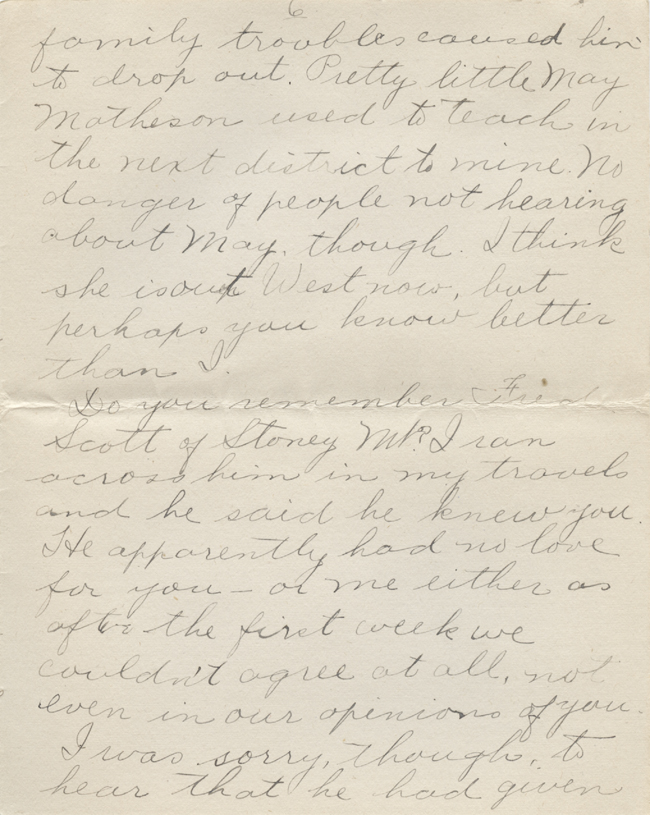 6
family troubles caused him
to drop out. Pretty little May
Matheson used to teach in
the next district to mine. No
danger of people not hearing
about May, though. I think
she is out West now, but
perhaps you know better
than I.
Do you remember Fred
Scott of Stoney Mt? I ran
across him in my travels
and he said he knew you.
He apparently had no love
for you – or me either as
after the first week we
couldn't agree at all, not
even in our opinions of you.
I was sorry, though, to
hear that he had given